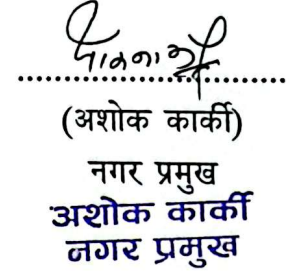 (अशोक कार्की)
नगर प्रमुख
अशोक कार्की
नगर प्रमुख